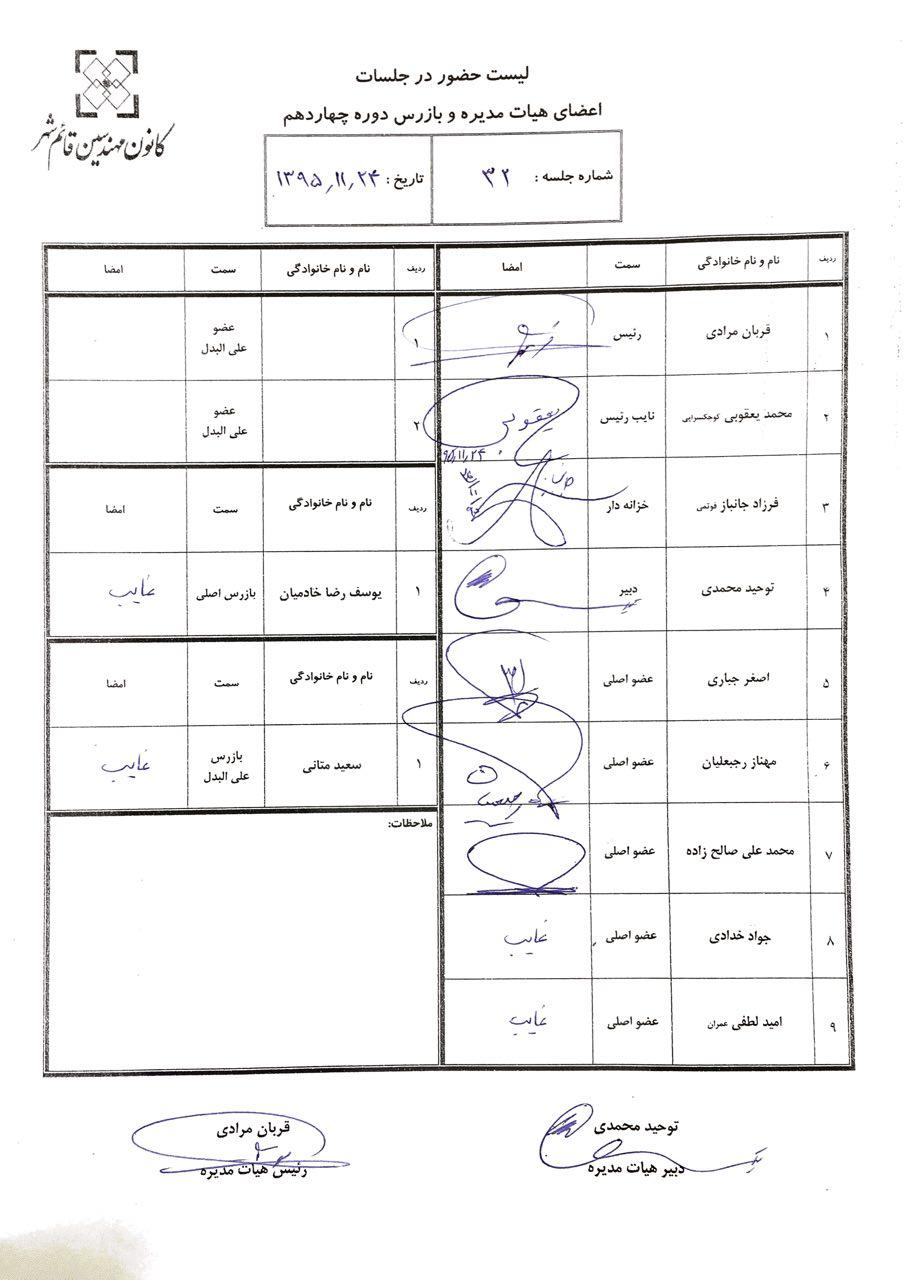 کانون مهندسین قائم شهر
لیست حضور در جلسات
اعضای هیات مدیره و بازرس دوره چهاردهم
شماره جلسه : ۳۲
تاریخ : ۱۳۹۵/۱۱/۲۴
ردیف نام و نام خانوادگی سمت امضا
۱ قربان مرادی رئیس
۲ محمد یعقوبی کوچکسرایی نایب رئیس یعقوبی ۹۵/۱۱/۲۴
۳ فرزاد جانباز فوتمی خزانه دار
۴ توحید محمدی دبیر
۵ اصغر جباری عضو اصلی
۶ مهناز رجبعلیان عضو اصلی
۷ محمد علی صالح زاده عضو اصلی
۸ جواد خدادی عضو اصلی غایب
۹ امید لطفی عمران عضو اصلی غایب
ردیف نام و نام خانوادگی سمت امضا
۱ عضو
علی البدل
۲ عضو
علی البدل
ردیف نام و نام خانوادگی سمت امضا
۱ یوسف رضا خادمیان بازرس اصلی غایب
ردیف نام و نام خانوادگی سمت امضا
۱ سعید متانی بازرس
علی البدل غایب
ملاحظات:
توحید محمدی
دبیر هیات مدیره
قربان مرادی
رئیس هیات مدیره